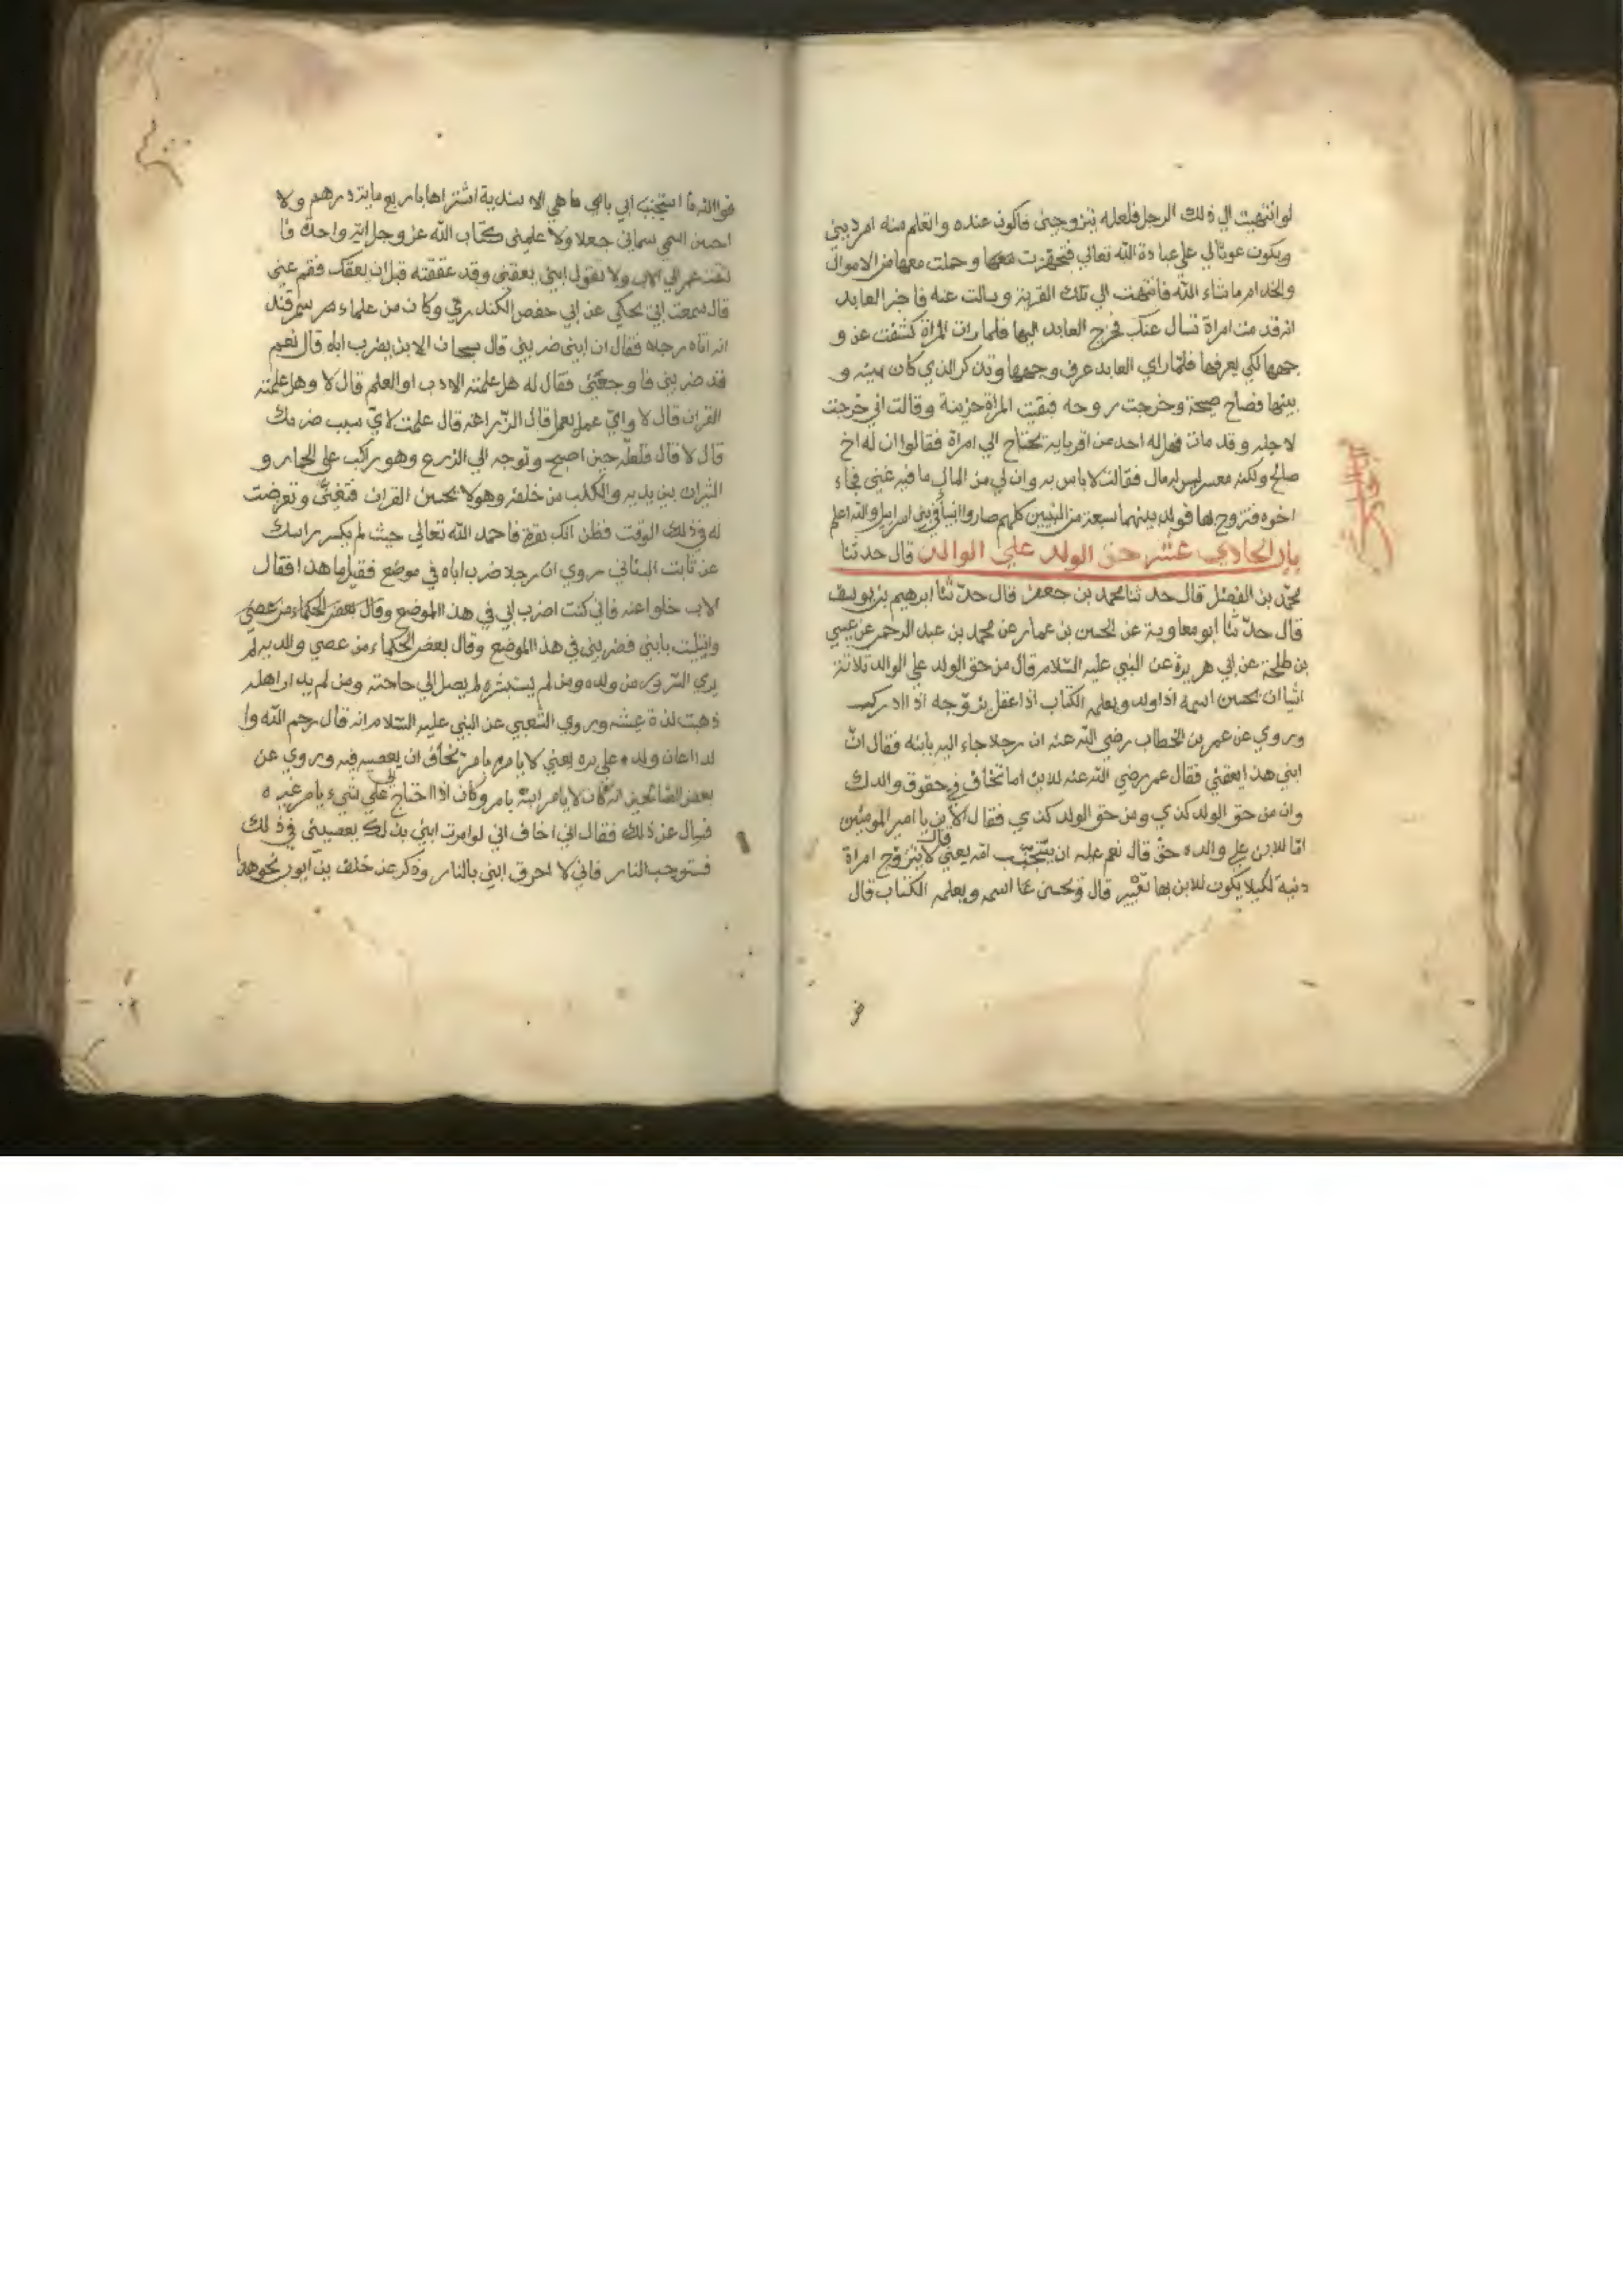 لو انتهيت الي ذلك الرجل فلعله يتزوجني فاكون عنده واتعلم منه امر ديني
ويكون عونا لي علي عبادة الله تعالي فتجهزت وحملت معها من الاموال
والخدام ما شاء الله فانتهت الي تلك القرية وسالت عنه فاخبر العابد
انه قد امراة تسال عنك فخرج العابد اليها فلما رات المراة كشفت عن و
جهها لكي يعرفها فلما راي العابد عرف وجهها وتذكر الذي كان بينه و
بينها فصاح صيحة وخرجت روحه فبقيت المراة حزينة وقالت اني خرجت
لاجله وقد مات فهل له احد من اقربايه يحتاج الي امراة فقالوا ان له اخ
صالح ولكنه معسر ليس له مال فقالت لا باس به وان لي من المال ما فيه غني فجاء
اخوه فتزوج بها فولد بينهما سبعة من النبيين كلهم صاروا انبيا في بني اسرايل والله اعلم
باب الحادي عشر حق الولد علي الوالد قال حدثنا
محمد بن الفضل قال حدثنا محمد بن جعفر قال حدثنا ابرهيم بن يوسف
قال حدثنا ابو معاوية عن الحسن بن عمار عن محمد بن عبد الرحمن عن عيسي
بن طلحة عن ابي هريرة عن النبي عليه السلام قال من حق الولد علي الوالد ثلاثة
اشيا ان يحسن اسمه اذا ولد ويعلمه الكتاب اذا عقل يزوجه اذا ادركـ
وروي عن عمر بن الخطاب رضي الله عنه ان رجلا جاء اليه بابنه فقال ان
ابني هذا يعقني فقال عمر رضي الله عنه للابن اما تخاف في حقوق والدك
وان من حق الولد كذي ومن حق الولد كذي فقال الابن يا امير المومنين
اما للابن علي والده حق قال نعم عليه ان يستنجب امه يعني قال لا يتزوج امراة
دنية لكيلا يكون للابن بها تعيير قال وتحسن اسمه ويعلمه الكتاب قال
فوالله ما استنجب ابي بامي ما هي الا سندية اشتراها باربع ماية درهم ولا
احسن اسمي سماني جعلا ولا علمني كتاب الله عز وجل اية واحدة فا
لتفت عمر الي الاب ولا تقول ابني يعقني وقد عققته قبل ان يعقك فقم عني
قال سمعت ابي يحكي عن ابي حفص وكان من علماء سمرقند
انه اتاه رجل فقال ان ابني ضربني قال سبحان الابن يضرب اباه قال نعم
قد ضربني فاوجعني فقال له هل علمته الادب او العلم قال لا وهل علمته
القران قال لا واي عمل يعمل قال الزراعة قال علمت لاي سبب ضربك
قال لا قال فلعله حين اصبح وتوجه الي الزرع وهو راكب علي الحمار و
الثيران بين يديه والكلب من خلفه وهو لا يحسن القران فتغني وتعرضت
له في ذلك الوقت فظن انك بقرة فاحمد الله تعالي حيث لم يكسر راسك
عن ثابت البناني روي ان رجلا ضرب اباه في موضع فقيل ما هذا فقال
الاب خلوا عنه فاني كنت اضرب ابي في هذا الموضع وقال بعض الحكماء من عصي
بابني فضربني في هذا الموضع وقال بعض الحكماء من عصي والديه لم
يري السرور من ولده ومن لم يستشره لم يصل الي حاجته ومن لم يدارا هله
ذهبت لذة عيشه وروي الشعبي عن النبي عليه السلام انه قال رحم الله وا
لدا اعان ولده علي بره يعني لا يامره بامر يخاف ان يعصيه فيه وروي عن
بعض الصالحين انه كان لا يامر ابنه بامر وكان اذا احتاج الي شيء يامر غيره
فسال عن ذلك فقال اني اخاف اني لو امرت ابني بذلك يعصيني في ذلك
فستوجب النار فاني لا احرق ابني بالنار وذكر عن خلف بن ايوب نحو هذا